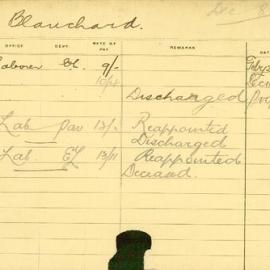 Dec
Blanchard.
OFFICE DEPT. RATE OF PAY REMARKS
Laborer El. 9/-
10/-
Discharged
Lab Pav 13/- Reappointed
Discharged
Lab. EL 13/11 Reappointed
Deceased.